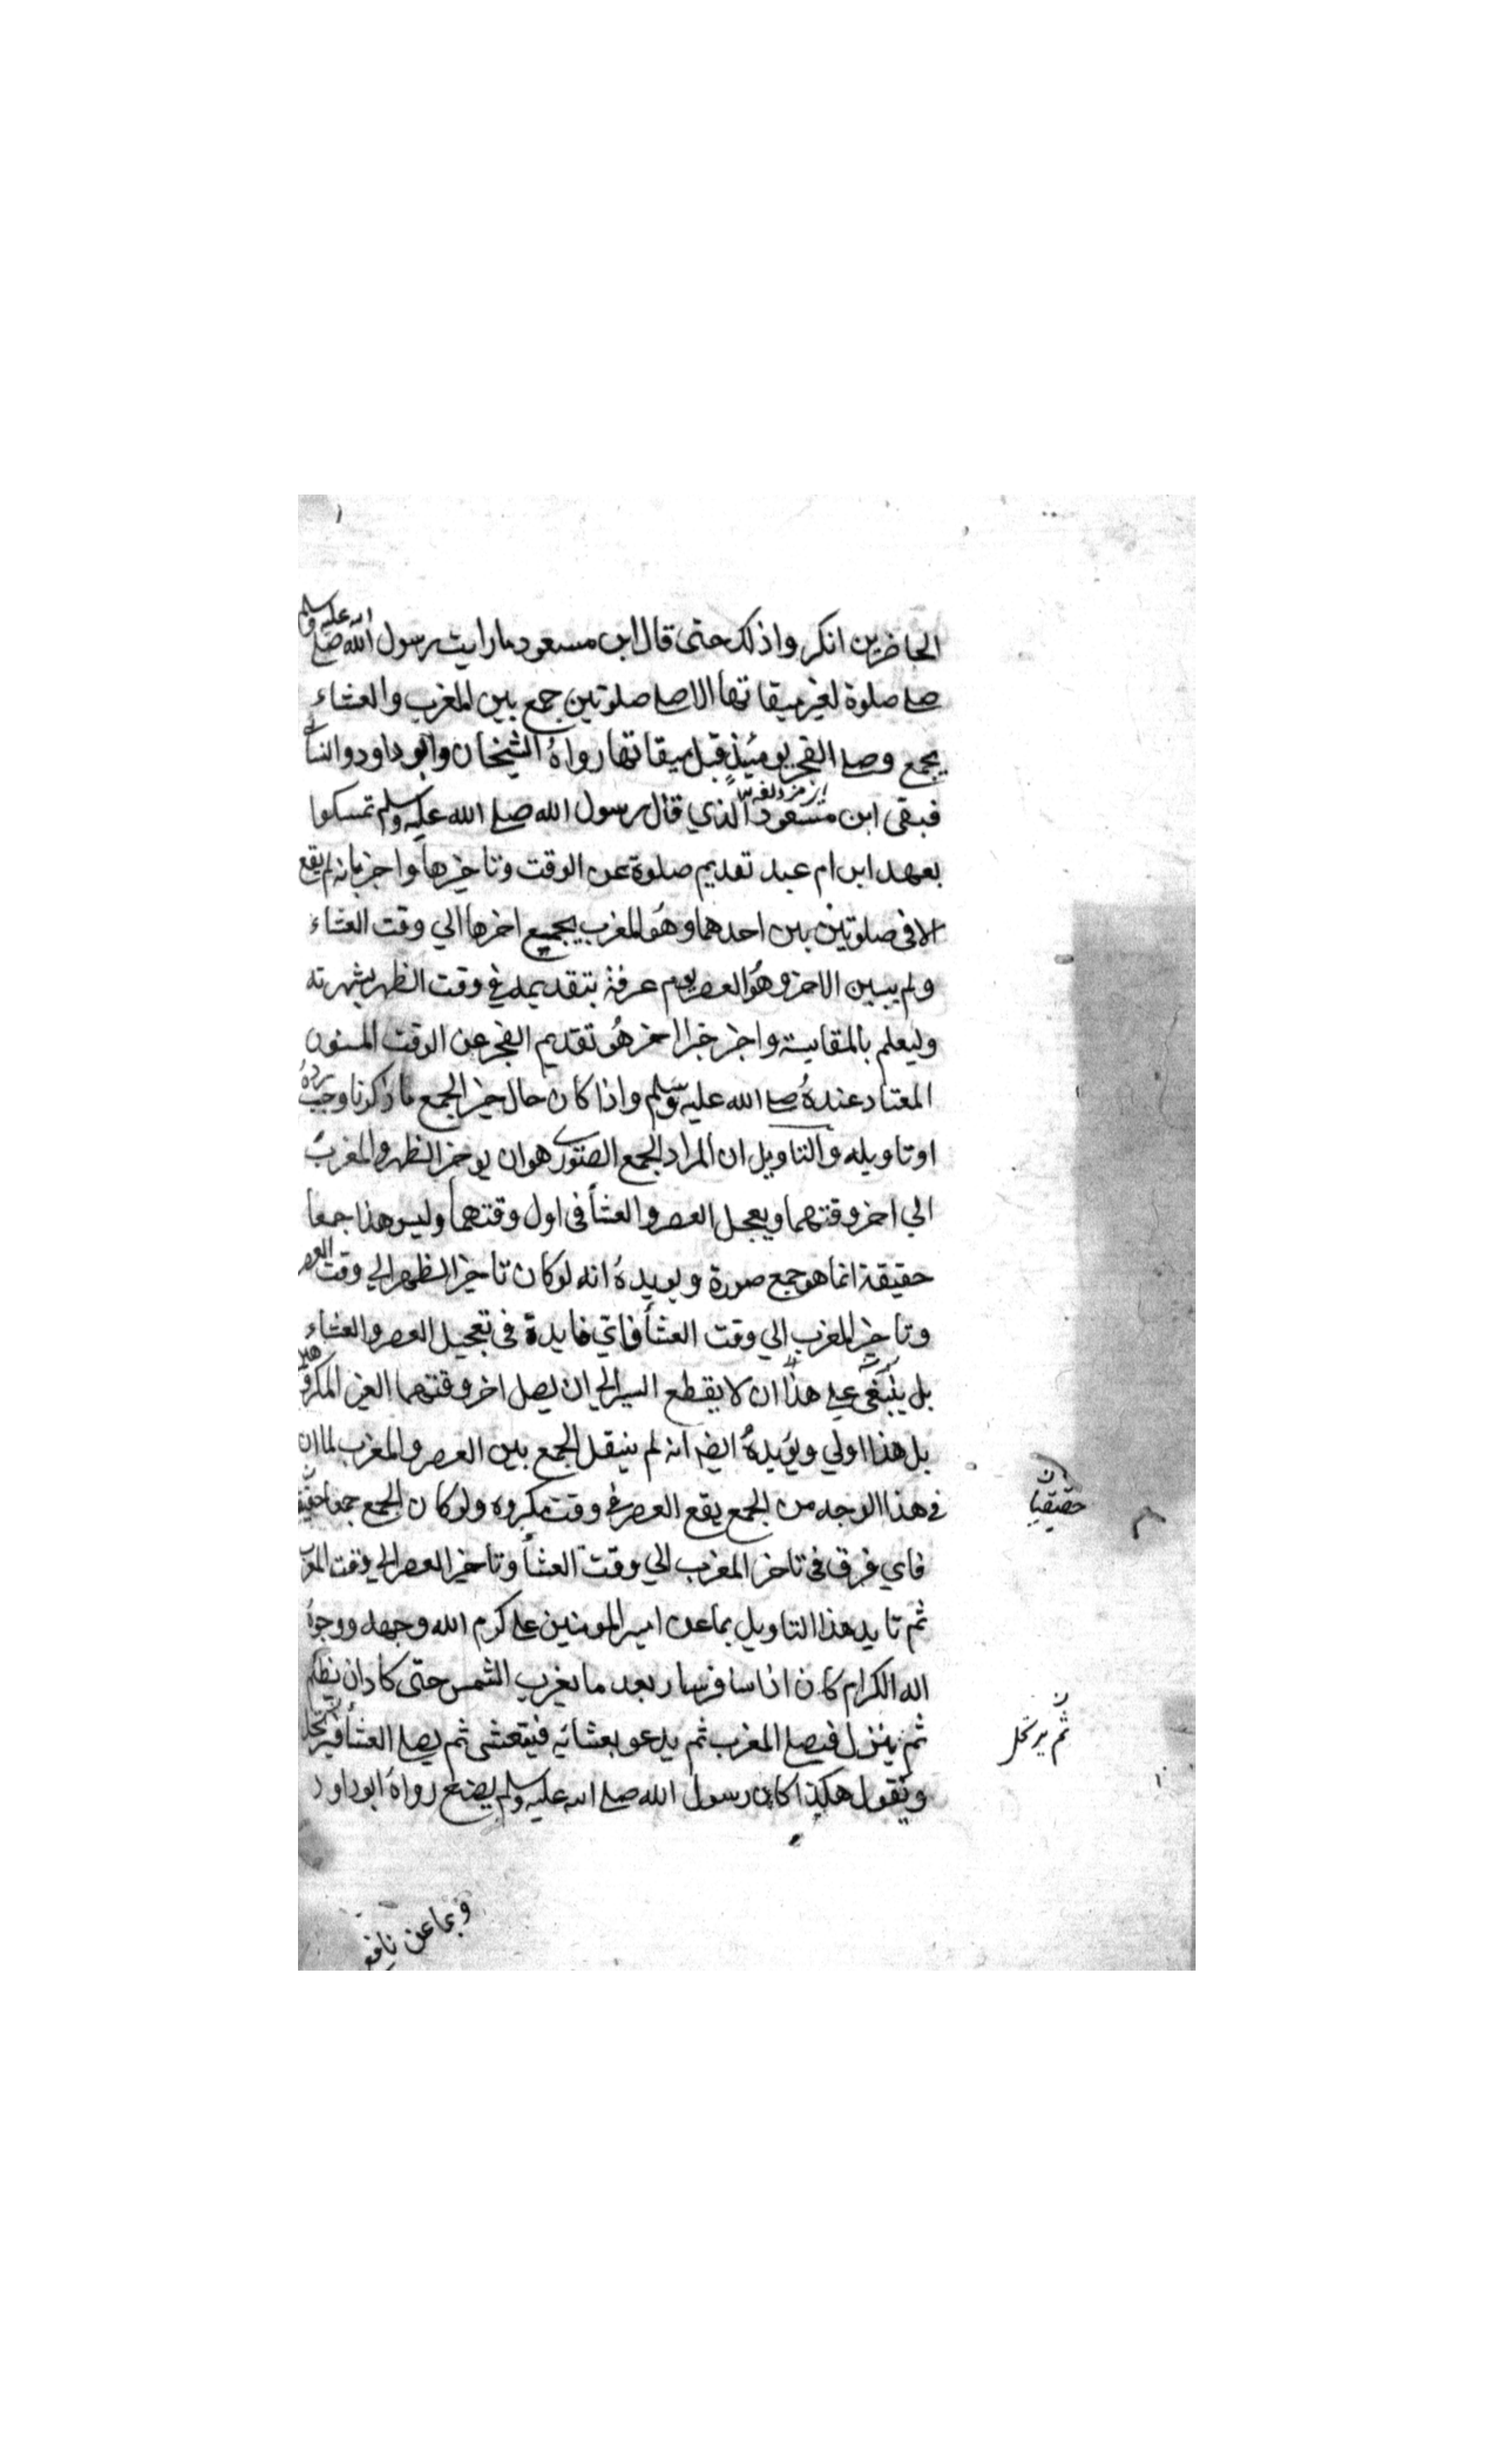 الحاضرين انكروا ذلك حتى قال ابن مسعود ما رايت رسول الله صلى الله عليه وسلم
صلى صلوة لغير ميقاتها الا صلى صلوتين جمع بين المغرب والعشاء
بجمع وصلى الفجر يومئذ قبل ميقاتها رواه الشيخان وابو داود والنسائي
اى مزدلفة
فبقى ابن مسعود الذي قال رسول الله صلى الله عليه وسلم تمسكوا
بعهد ابن ام عبد تقديم صلوة عن الوقت وتاخيرها واخبر بانه لم يقع
الا فى صلوتين بين احدهما وهو المغرب بجمع اخرها الي وقت العشاء
ولم يبين الاخر وهو العصر يوم عرفة بتقديمه في وقت الظهر بشهرته
وليعلم بالمقايسة واخبر خبرا اخر هو تقديم الفجر عن الوقت المسنون
المعتاد عنده صلى الله عليه وسلم واذا كان حال خبر الجمع ما ذكرنا وجب رده
او تاويله والتاويل ان المراد الجمع الصوري هو ان يوخر الظهر والمغرب
الي اخر وقتهما ويعجل العصر والعشأ فى اول وقتهما وليس هذا جمعا
حقيقة انما هو جمع صورة ويويده انه لو كان تاخير الظهر الي وقت العصر
وتاخير المغرب الي وقت العشأ فاي فايدة فى تعجيل العصر والعشاء
بل ينبغى على هذا ان لا يقطع السير الي ان يصل اخر وقتهما الغير المكروهين
بل هذا اولي ويؤيده ايضه انه لم ينقل الجمع بين العصر والمغرب لما ان
في هذا الوجه من الجمع يقع العصر في وقت مكروه ولو كان الجمع جمعا
حقيقيا
فاي فرق فى تاخر المغرب الي وقت العشأ وتاخير العصر الي وقت المغرب
ثم تايد هذا التاويل بما عن امير المومنين على كرم الله وجهه ووجوه
اله الكرام كان اذا سافر سار بعد ما تغرب الشمس حتى كاد ان تظلم
ثم ينزل فيصلى المغرب ثم يدعو بعشائه فيتعشى ثم يصلى العشأ
ثم يرتحل
ويقول هكذا كان رسول الله صلى الله عليه وسلم يصنع رواه ابو داود
وبما عن نافع